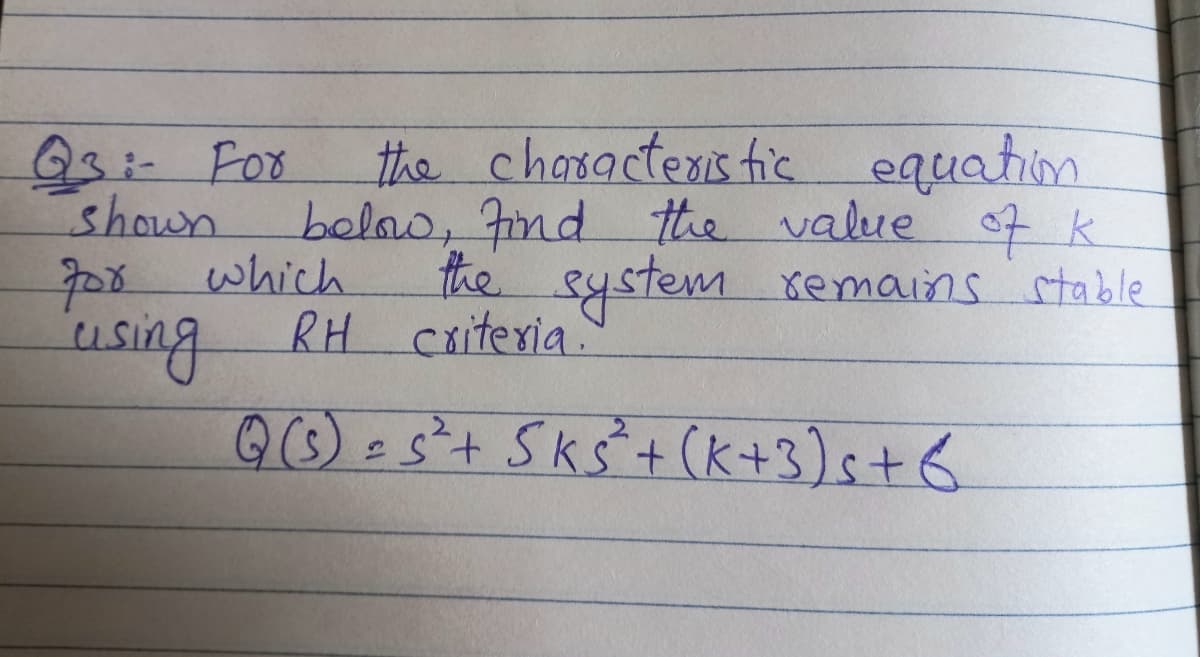 Q3:- For the characteristic equation
shown below, find the value of k
for which the system remains stable
using RH criteria.
Q(s) = s²+ 5ks²+(k+3)s+6